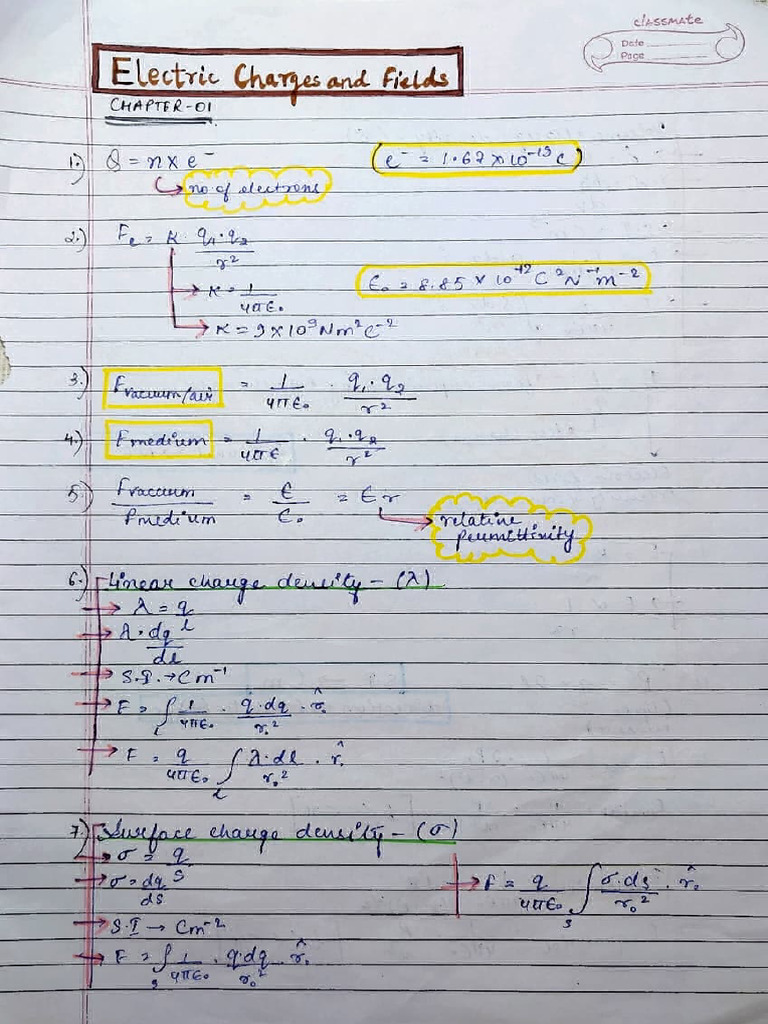 classmate
Date
Page
Electric Charges and Fields
CHAPTER-01
1.) Q = n × e⁻
e⁻ = 1.67 × 10⁻¹⁹ C
no. of electrons
2.) Fe = K · q₁·q₂ / r²
K = 1 / 4πε₀
ε₀ = 8.85 × 10⁻¹² C²N⁻¹m⁻²
K = 9 × 10⁹ Nm²C⁻²
3.) Fvacuum/air = 1 / 4πε₀ · q₁·q₂ / r²
4.) Fmedium = 1 / 4πε · q₁·q₂ / r²
5.) Fvaccum / Fmedium = ε / ε₀ = εr
relative
permittivity
6.) Linear charge density – (λ)
λ = q / l
λ · dq / dl
S.I. → Cm⁻¹
F = ∫l 1 / 4πε₀ · q·dq / r₀² · r̂₀
F = q / 4πε₀ ∫l λ·dl / r₀² · r̂₀
7.) Surface charge density – (σ)
σ = q / S
σ = dq / ds
F = q / 4πε₀ ∫s σ·ds / r₀² · r̂₀
S.I → Cm⁻²
F = ∫s 1 / 4πε₀ · q·dq / r₀² · r̂₀